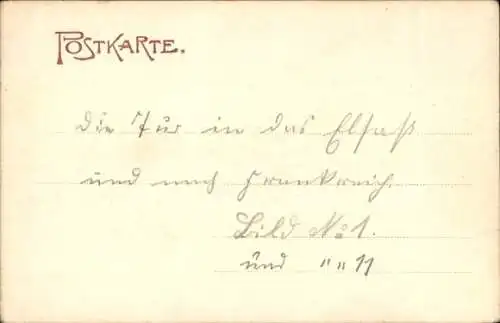 POSTKARTE.
die Tur in das Elsaß
und nach Frankreich.
Bild No 1.
und " " 11